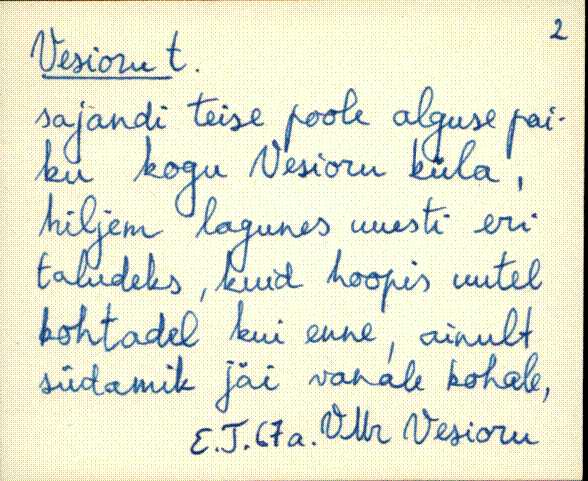 2
Vesioru t.
sajandi teise poole alguse pai-
ku kogu Vesioru küla,
hiljem lagunes uuesti eri
taludeks, kuid hoopis uutel
kohtadel kui enne, ainult
südamik jäi vanale kohale,
E.T.67a. VMr Vesioru